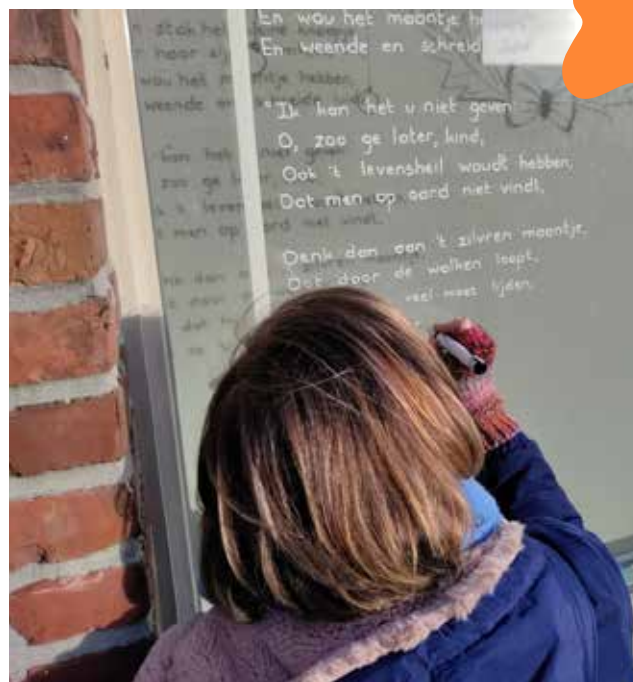 En wou het maantje h
En weende en schreid
"Ik kan het u niet geven
O, zoo ge later, kind,
Ook 't levensheil woudt hebben,
Dat men op aard niet vindt,
Denk dan aan 't zilvren maantje,
Dat door de wolken loopt,
veel moet lijden